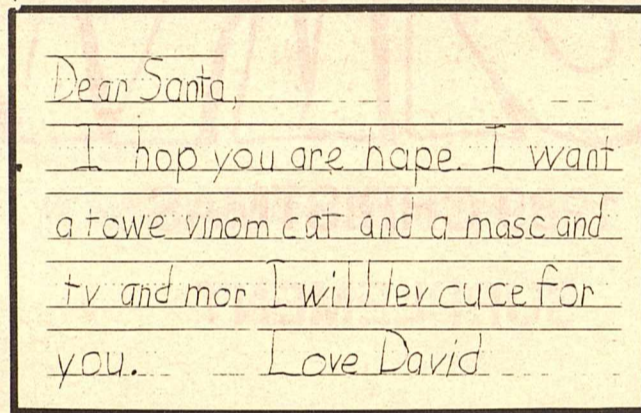 Dear Santa,
I hop you are hape. I want
a towe vinom cat and a masc and
tv and mor I will lev cuce for
you. Love David